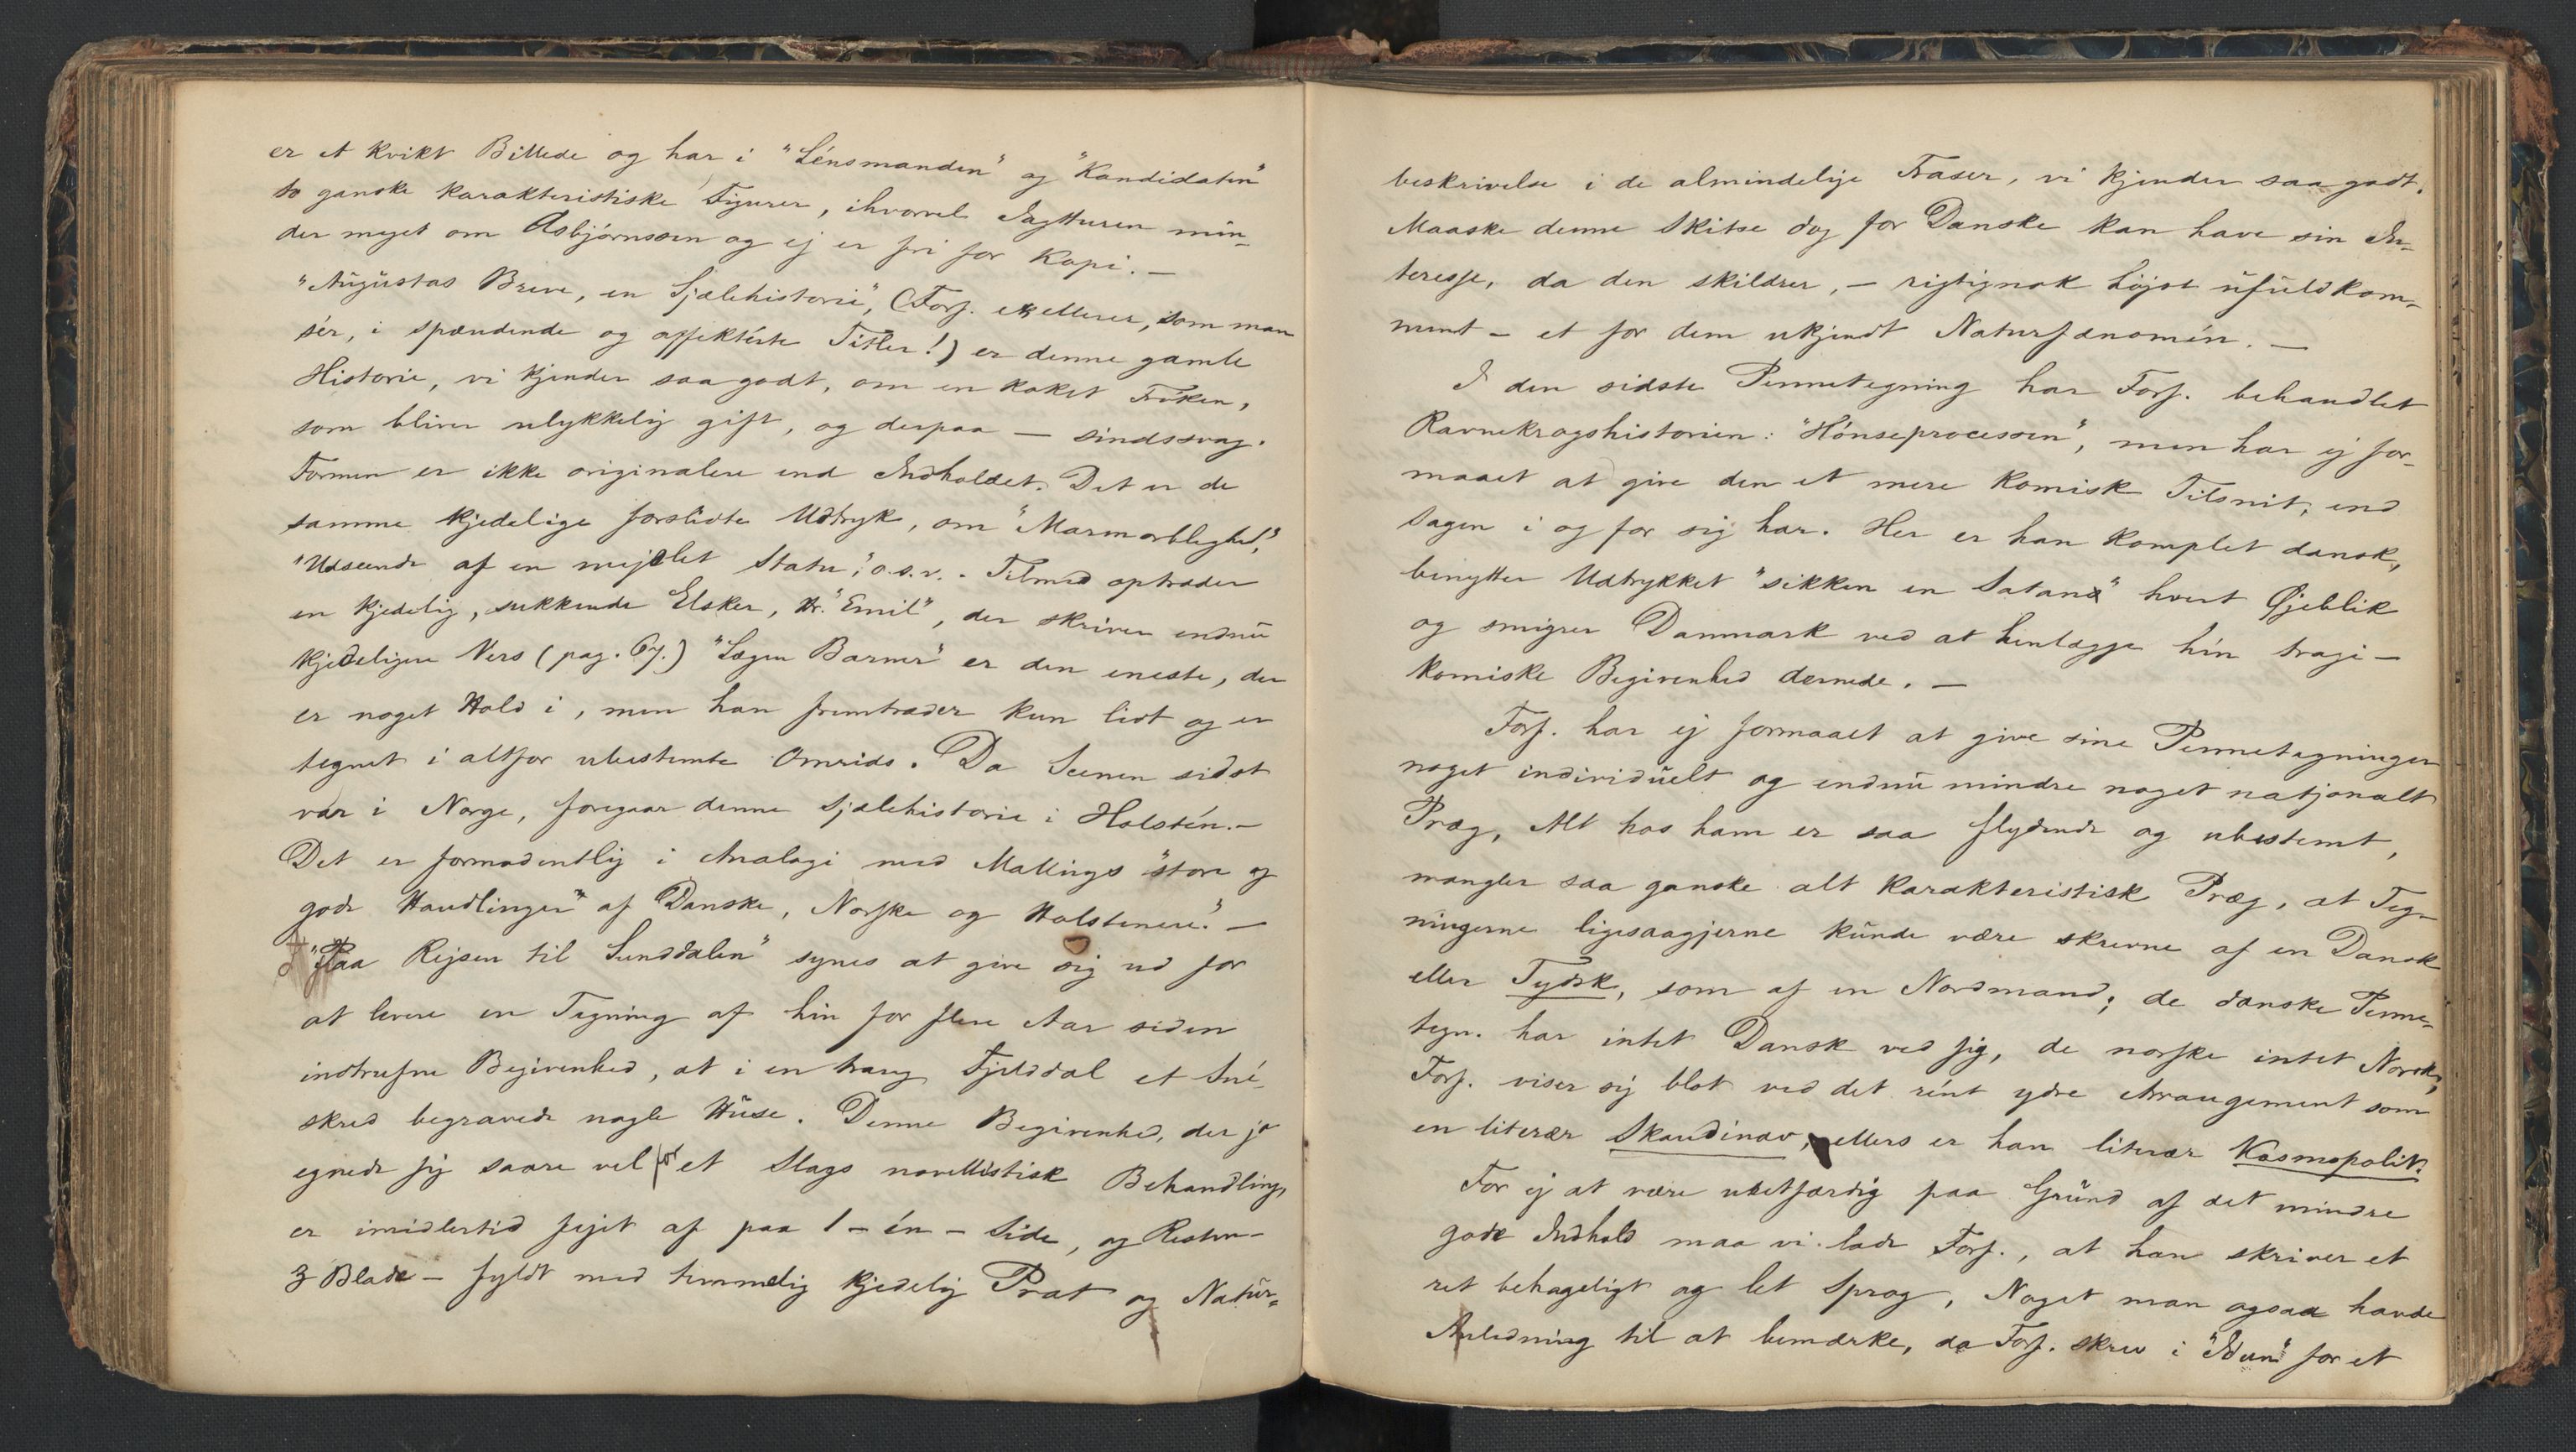 er et kvikt Billede og har i "Lénsmanden" og "Kandidaten"
to ganske karakteristiske Figurer, ihvorvel Jagtturen min-
der meget om Asbjørnssen og ej er fri for Kopi. —
"Augustas Breve, en Sjælehistorie", (Forf. exellerer, som man
sér, i spændende og affektérte Titler!) er denne gamle
Historie, vi kjender saa godt, om en koket Frøken,
som bliver ulykkelig gift, og derpaa — sindssvag.
Formen er ikke originalere end Indholdet. Det er de
samme kjedelige forslidte Udtryk, om "Marmorbleghed",
"Udseende af en mejslet Statu", o.s.v. Tilmed optræder
en kjedelig, sukkende Elsker, Hr. "Emil", der skriver endnu
kjedeligere Vers (pag. 67.) "Lægen Barner" er den eneste, der
er noget Hold i, men han fremtræder kun lidt og er
tegnet i altfor ubestemte Omrids. Da Scenen sidst
var i Norge, foregaar denne Sjælehistorie i Holstén. —
Det er formodentlig i Analogi med Mallings "store og
gode Handlinger" af Danske, Norske og Holstenere." —
"Paa Rejsen til Sunddalen" synes at give sig ud for
at levere en Tegning af hin for flere Aar siden
indtrufne Begivenhed, at i en trang Fjelddal et Sné-
skred begravede nogle Huse. Denne Begivenhed, der jo
egnede sig saare vel for et Slags novellistisk Behandling,
er imidlertid fejet af paa 1 - én - Side, og Resten -
3 Blade - fyldt med temmelig kjedelig Prat og Natur-
beskrivelse i de almindelige Fraser, vi kjender saa godt.
Maaske denne Skitse dog for Danske kan have sin In-
teresse, da den skildrer, — rigtignok højst ufuldkom-
ment — et for dem ukjendt Naturfænomén. —
I den sidste Pennetegning har Forf. behandlet
Ravnekrogshistorien: "Hønseprocessen", men har ej for-
maaet at give den et mere komisk Tilsnit, end
Sagen i og for sig har. Her er han komplet dansk,
benytter Udtrykket "sikken en Satan" hvert Øjeblik
og smigrer Danmark ved at henlægge hin tragi-
komiske Begivenhed dernede. —
Forf. har ej formaaet at give sine Pennetegninger
noget individuelt og endnu mindre noget natjonalt
Præg, Alt hos ham er saa flydende og ubestemt,
mangler saa ganske alt karakteristisk Præg, at Teg-
ningerne ligesaagjerne kunde være skrevne af en Dansk
eller Tydsk, som af en Nordmand; de danske Penne-
tegn. har intet Dansk ved sig, de norske intet Norsk,
Forf. viser sig blot ved det rént ydre Arrangement som
en literær Skandinav, ellers er han literær Kosmopolit.
For ej at være uretfærdig paa Grund af det mindre
gode Indhold maa vi lade Forf., at han skriver et
ret behageligt og let Sprog, Noget man ogsaa havde
Anledning til at bemærke, da Forf. skrev i "Idun" for et